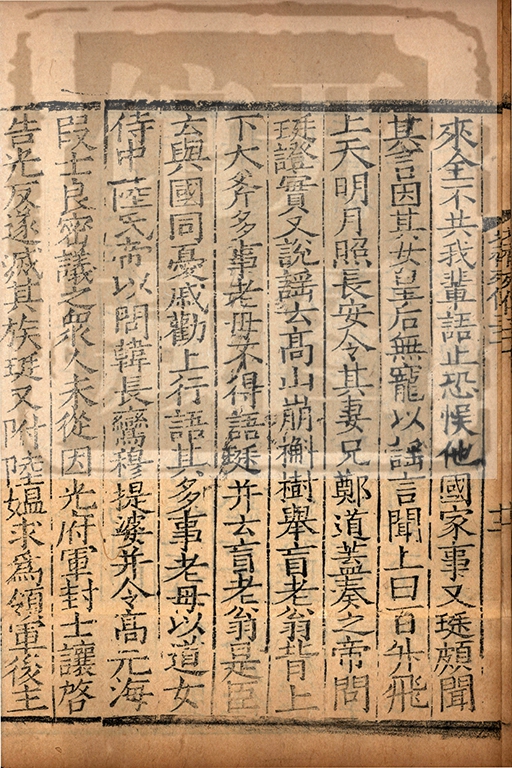 來全不共我軰語止恐悮他國家事又珽頗聞
其言因其女皇后無寵以謡言聞上曰百升飛
上天明月照長安令其妻兄鄭道蓋奏之帝問
珽證實又說謡云髙山崩槲樹舉盲老翁背上
下大斧多事老母不得語珽并云盲老翁是臣
云與國同憂戚勸上行語其多事老母以道女
侍中陸氏帝以問韓長鸞穆提婆并令髙元海
段士良密議之衆人未從因光府軍封士讓啓
告光反遂滅其族珽又附陸媪求爲領軍後主